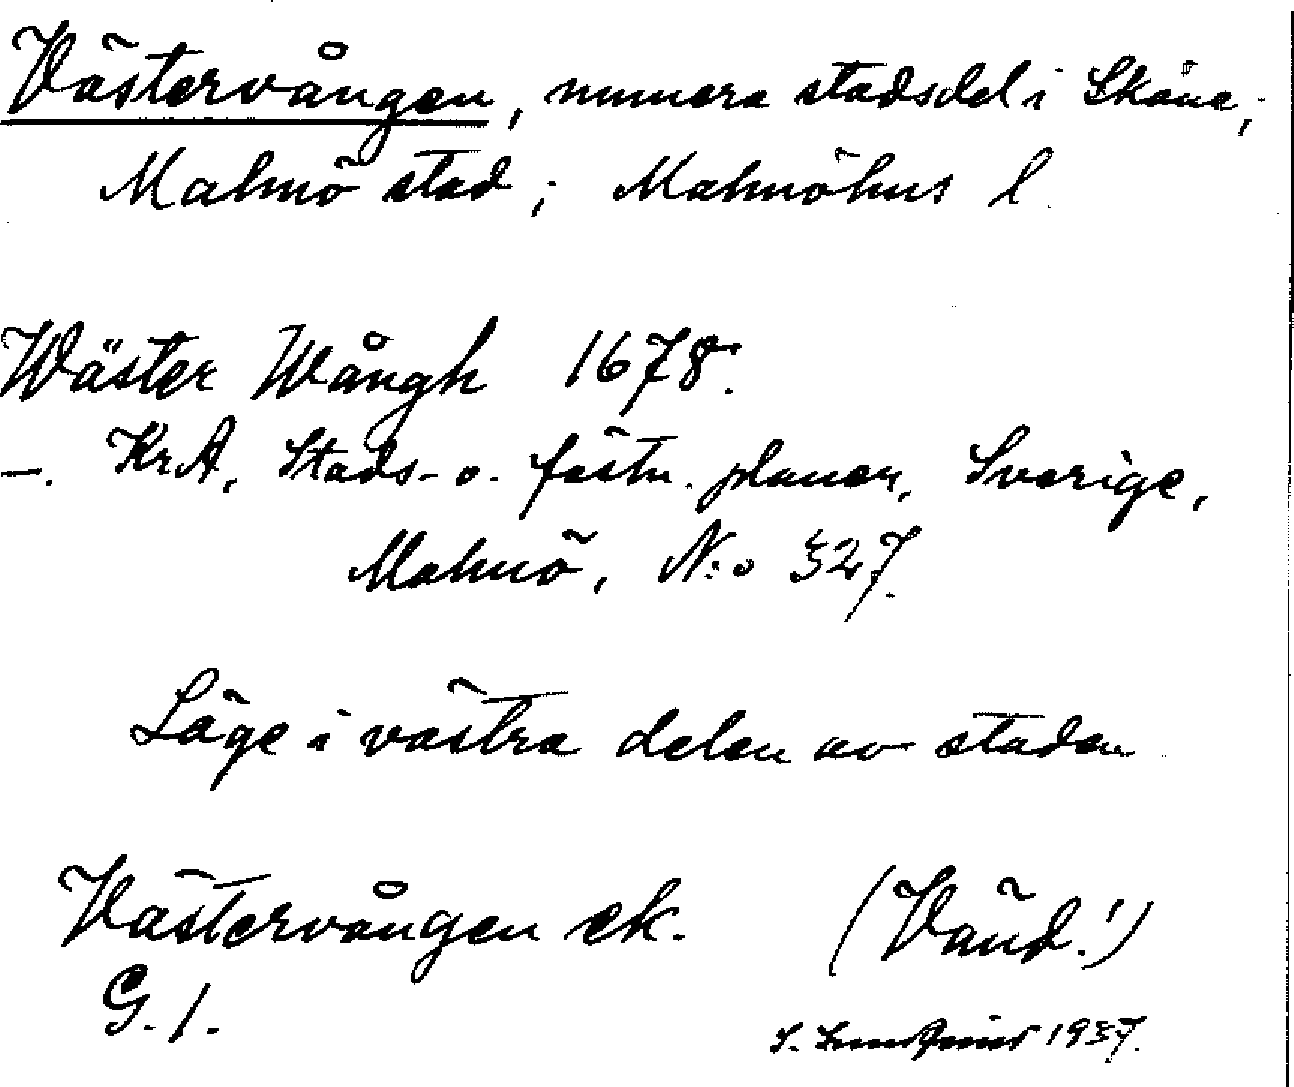 Västervången, numera stadsdel i Skåne,
Malmö stad; Malmöhus l.
Wäster Wångh 1678.
—. KrA, Stads- o. fästn. planer, Sverige,
Malmö, N:o 327.
Läge i västra delen av staden
Västervången ek. (Vänd!)
G. 1.
S. 1937.